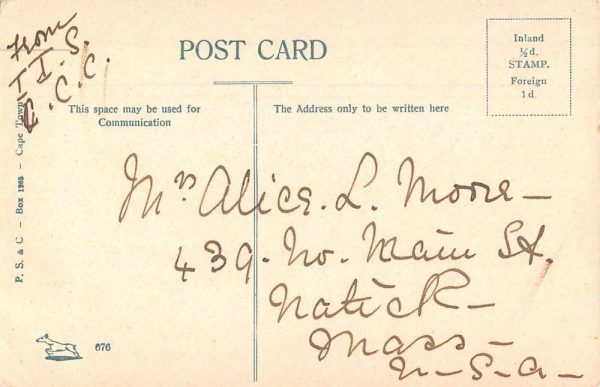 From
T. I. S.
C. C. C.
POST CARD
Inland
½d.
STAMP.
Foreign
1d.
This space may be used for
Communication
The Address only to be written here
Mrs Alice. L. Moore —
439. No. Main St.
Natick —
Mass —
U — S — A —
P. S. & C — Box 1905 — Cape Town
676